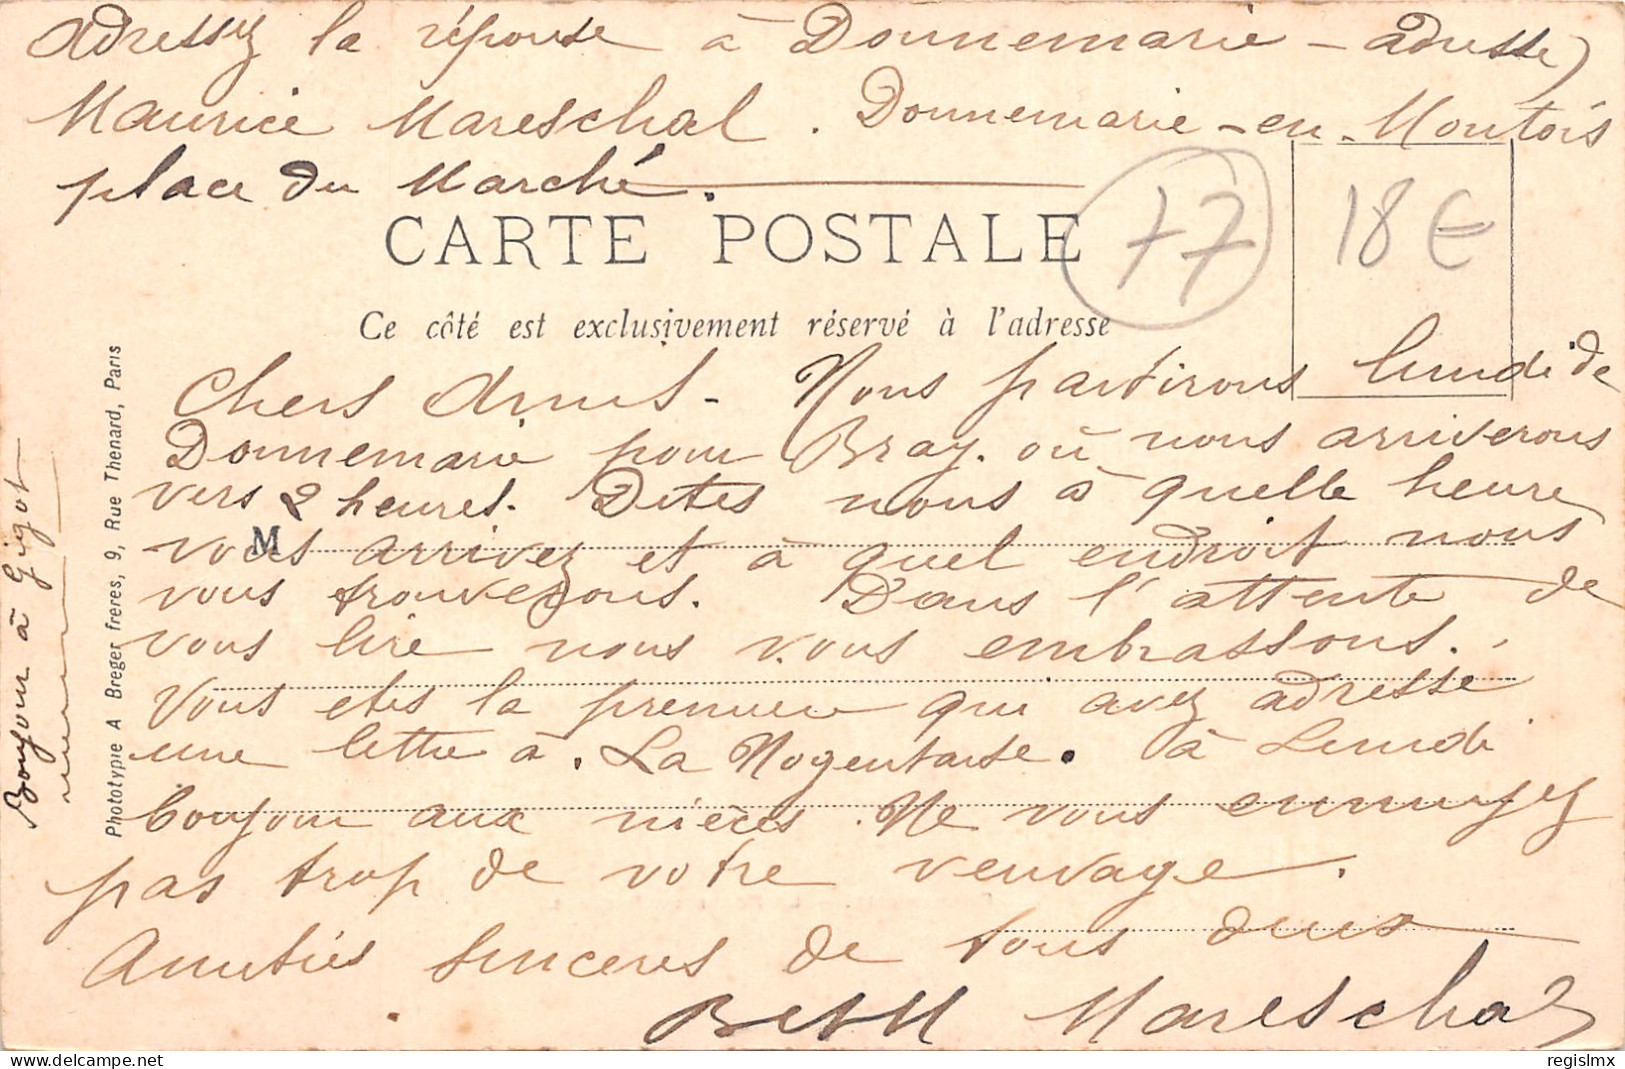 Adressez la réponse à Donnemarie - adresse
Maurice Mareschal. Donnemarie-en-Montois
place du Marché.
CARTE POSTALE
77
18 €
Ce côté est exclusivement réservé à l'adresse
Chers Amis - Nous partirons lundi de
Donnemarie pour Bray. où nous arriverons
vers 2 heures. Dites nous à quelle heure
M
vous arrivez et à quel endroit nous
vous trouverons. Dans l'attente de
vous lire nous vous embrassons.
Vous etes la premiere qui avez adresse
une lettre à. La Nogentaise. à Lundi
bonjour aux nièces. Ne vous ennuyez
pas trop de votre veuvage.
Amitiés sinceres de tous deux
B et M Mareschal
Bonjour à Gigot
Phototypie A Breger frères, 9, Rue Thenard, Paris
delcampe.net
regislmx